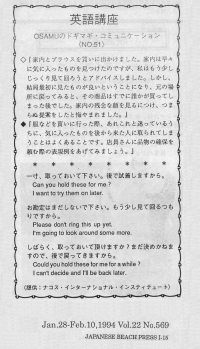 英語講座
OSAMUのドギマギ・コミュニケーション
(NO.51)
◇『家内とブラウスを買いに出かけました。家内は早々
に気に入ったものを見つけたのですが、私はもう少し
じっくり見て回ろうとアドバイスしました。しかし、
結局最初に見たものが良いということになり、元の場
所に戻ってみると、その商品はすでに誰かが買ってし
まった後でした。家内の残念な顔を見るにつけ、つま
らぬ提案をしたと悔やまれました。』
◆『服などを買いに行った際、あれこれと迷っているう
ちに、気に入ったものを後から来た人に取られてしま
うことはよくあることです。店員さんに品物の確保を
頼む際の表現例をあげてみましょう。』
＊ ＊ ＊ ＊ ＊ ＊ ＊
一寸、取っておいて下さい。後で試着しますから。
Can you hold these for me ?
I want to try them on later.
お勘定はまだしないで下さい。もう少し見て回るつも
りですから。
Please don't ring this up yet.
I'm going to look around some more.
しばらく、取っておいて頂けますか？まだ決めかねま
すので、後で戻ってきますから。
Could you hold these for me for a while ?
I can't decide and I'll be back later.
(提供：ナコス・インターナショナル・インスティテュート)
Jan.28-Feb.10,1994 Vol.22 No.569
JAPANESE BEACH PRESS I-15